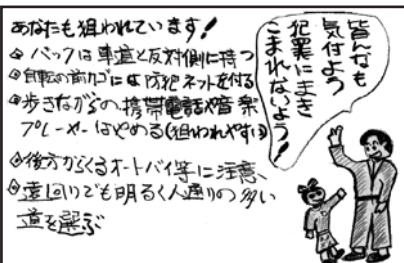 あなたも狙われています!
◇バックは車道と反対側に持つ
◇自転の前カゴには防犯ネットを付る
◇歩きながらの、携帯電話や音楽
プレーヤーはやめる(狙われやすい)
◇後方からくるオートバイ等に注意、
◇遠回りでも明るく人通りの多い
道を選ぶ
皆んなも
気付よう
犯罪にまき
こまれないよう!